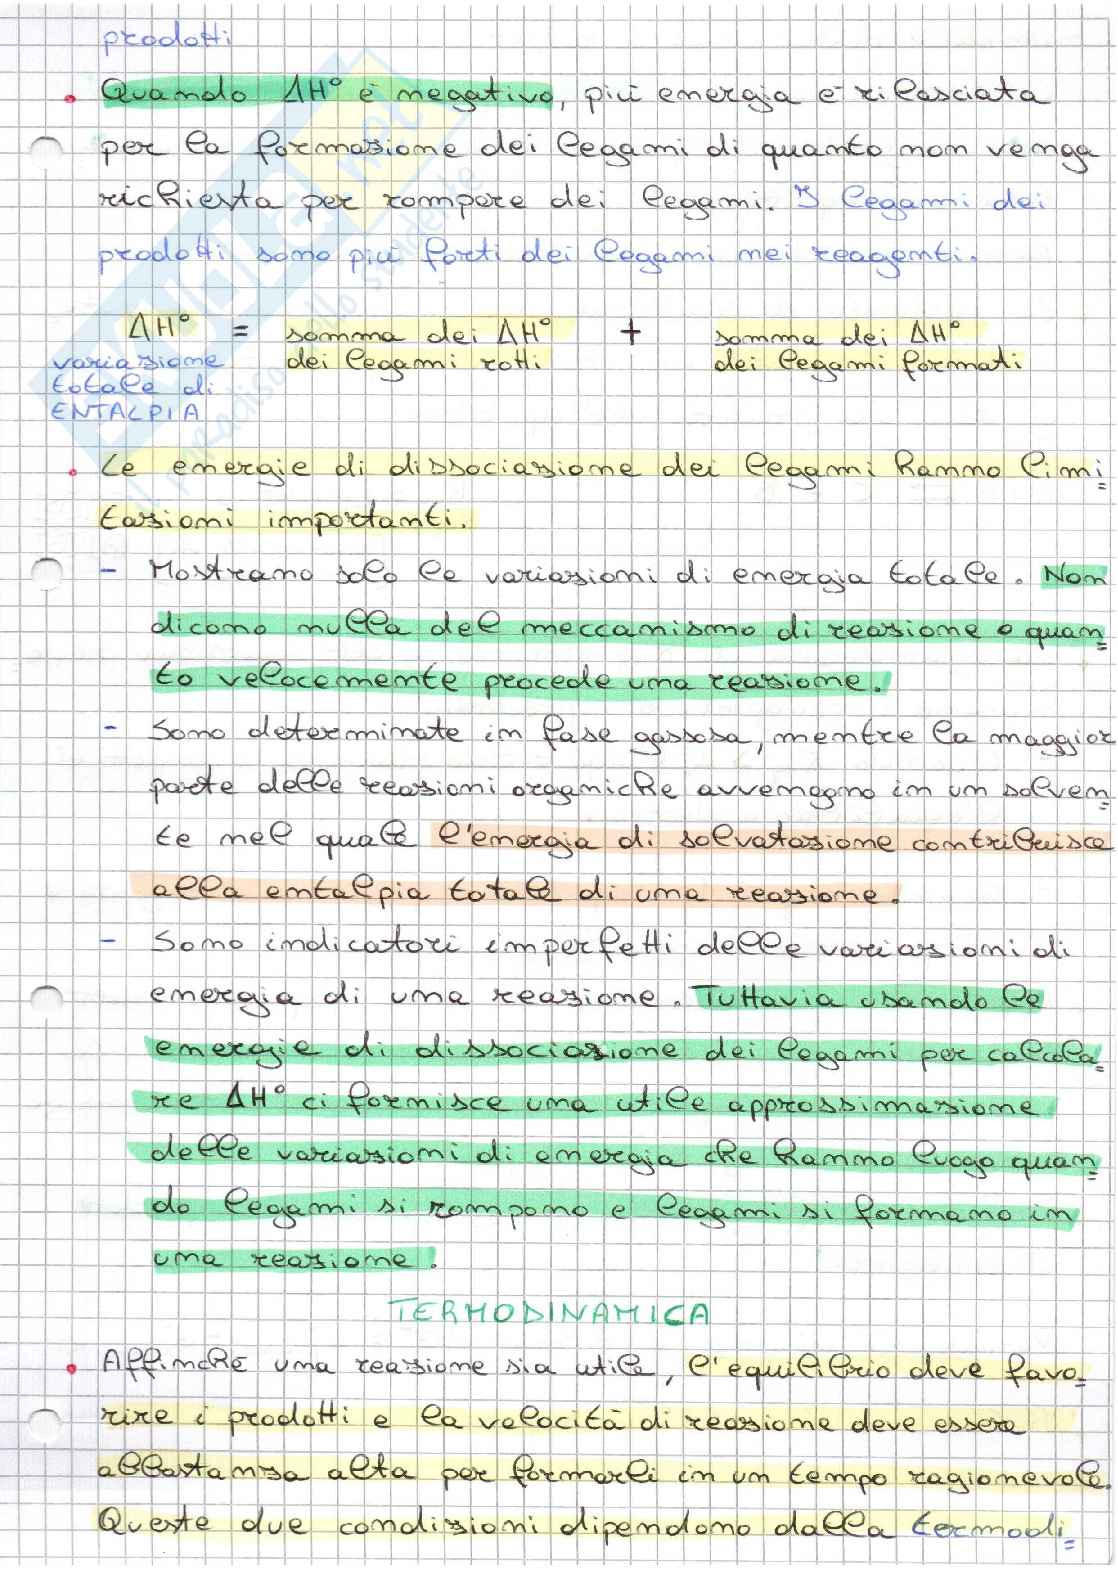 prodotti
• Quando ΔH° è negativo, più energia è rilasciata
per la formazione dei legami di quanto non venga
richiesta per rompere dei legami. I legami dei
prodotti sono più forti dei legami nei reagenti.
ΔH° = somma dei ΔH° + somma dei ΔH°
variazione dei legami rotti dei legami formati
totale di
ENTALPIA
• Le energie di dissociazione dei legami hanno limi=
tazioni importanti.
- Mostrano solo le variazioni di energia totale. Non
dicono nulla del meccanismo di reazione o quan=
to velocemente procede una reazione.
- Sono determinate in fase gassosa, mentre la maggior
parte delle reazioni organiche avvengono in un solven=
te nel quale l'energia di solvatazione contribuisce
alla entalpia totale di una reazione.
- Sono indicatori imperfetti delle variazioni di
energia di una reazione. Tuttavia usando le
energie di dissociazione dei legami per calcola=
re ΔH° ci fornisce una utile approssimazione
delle variazioni di energia che hanno luogo quan=
do legami si rompono e legami si formano in
una reazione.
TERMODINAMICA
• Affinchè una reazione sia utile, l'equilibrio deve favo=
rire i prodotti e la velocità di reazione deve essere
abbastanza alta per formarli in un tempo ragionevole.
Queste due condizioni dipendono dalla termodi=